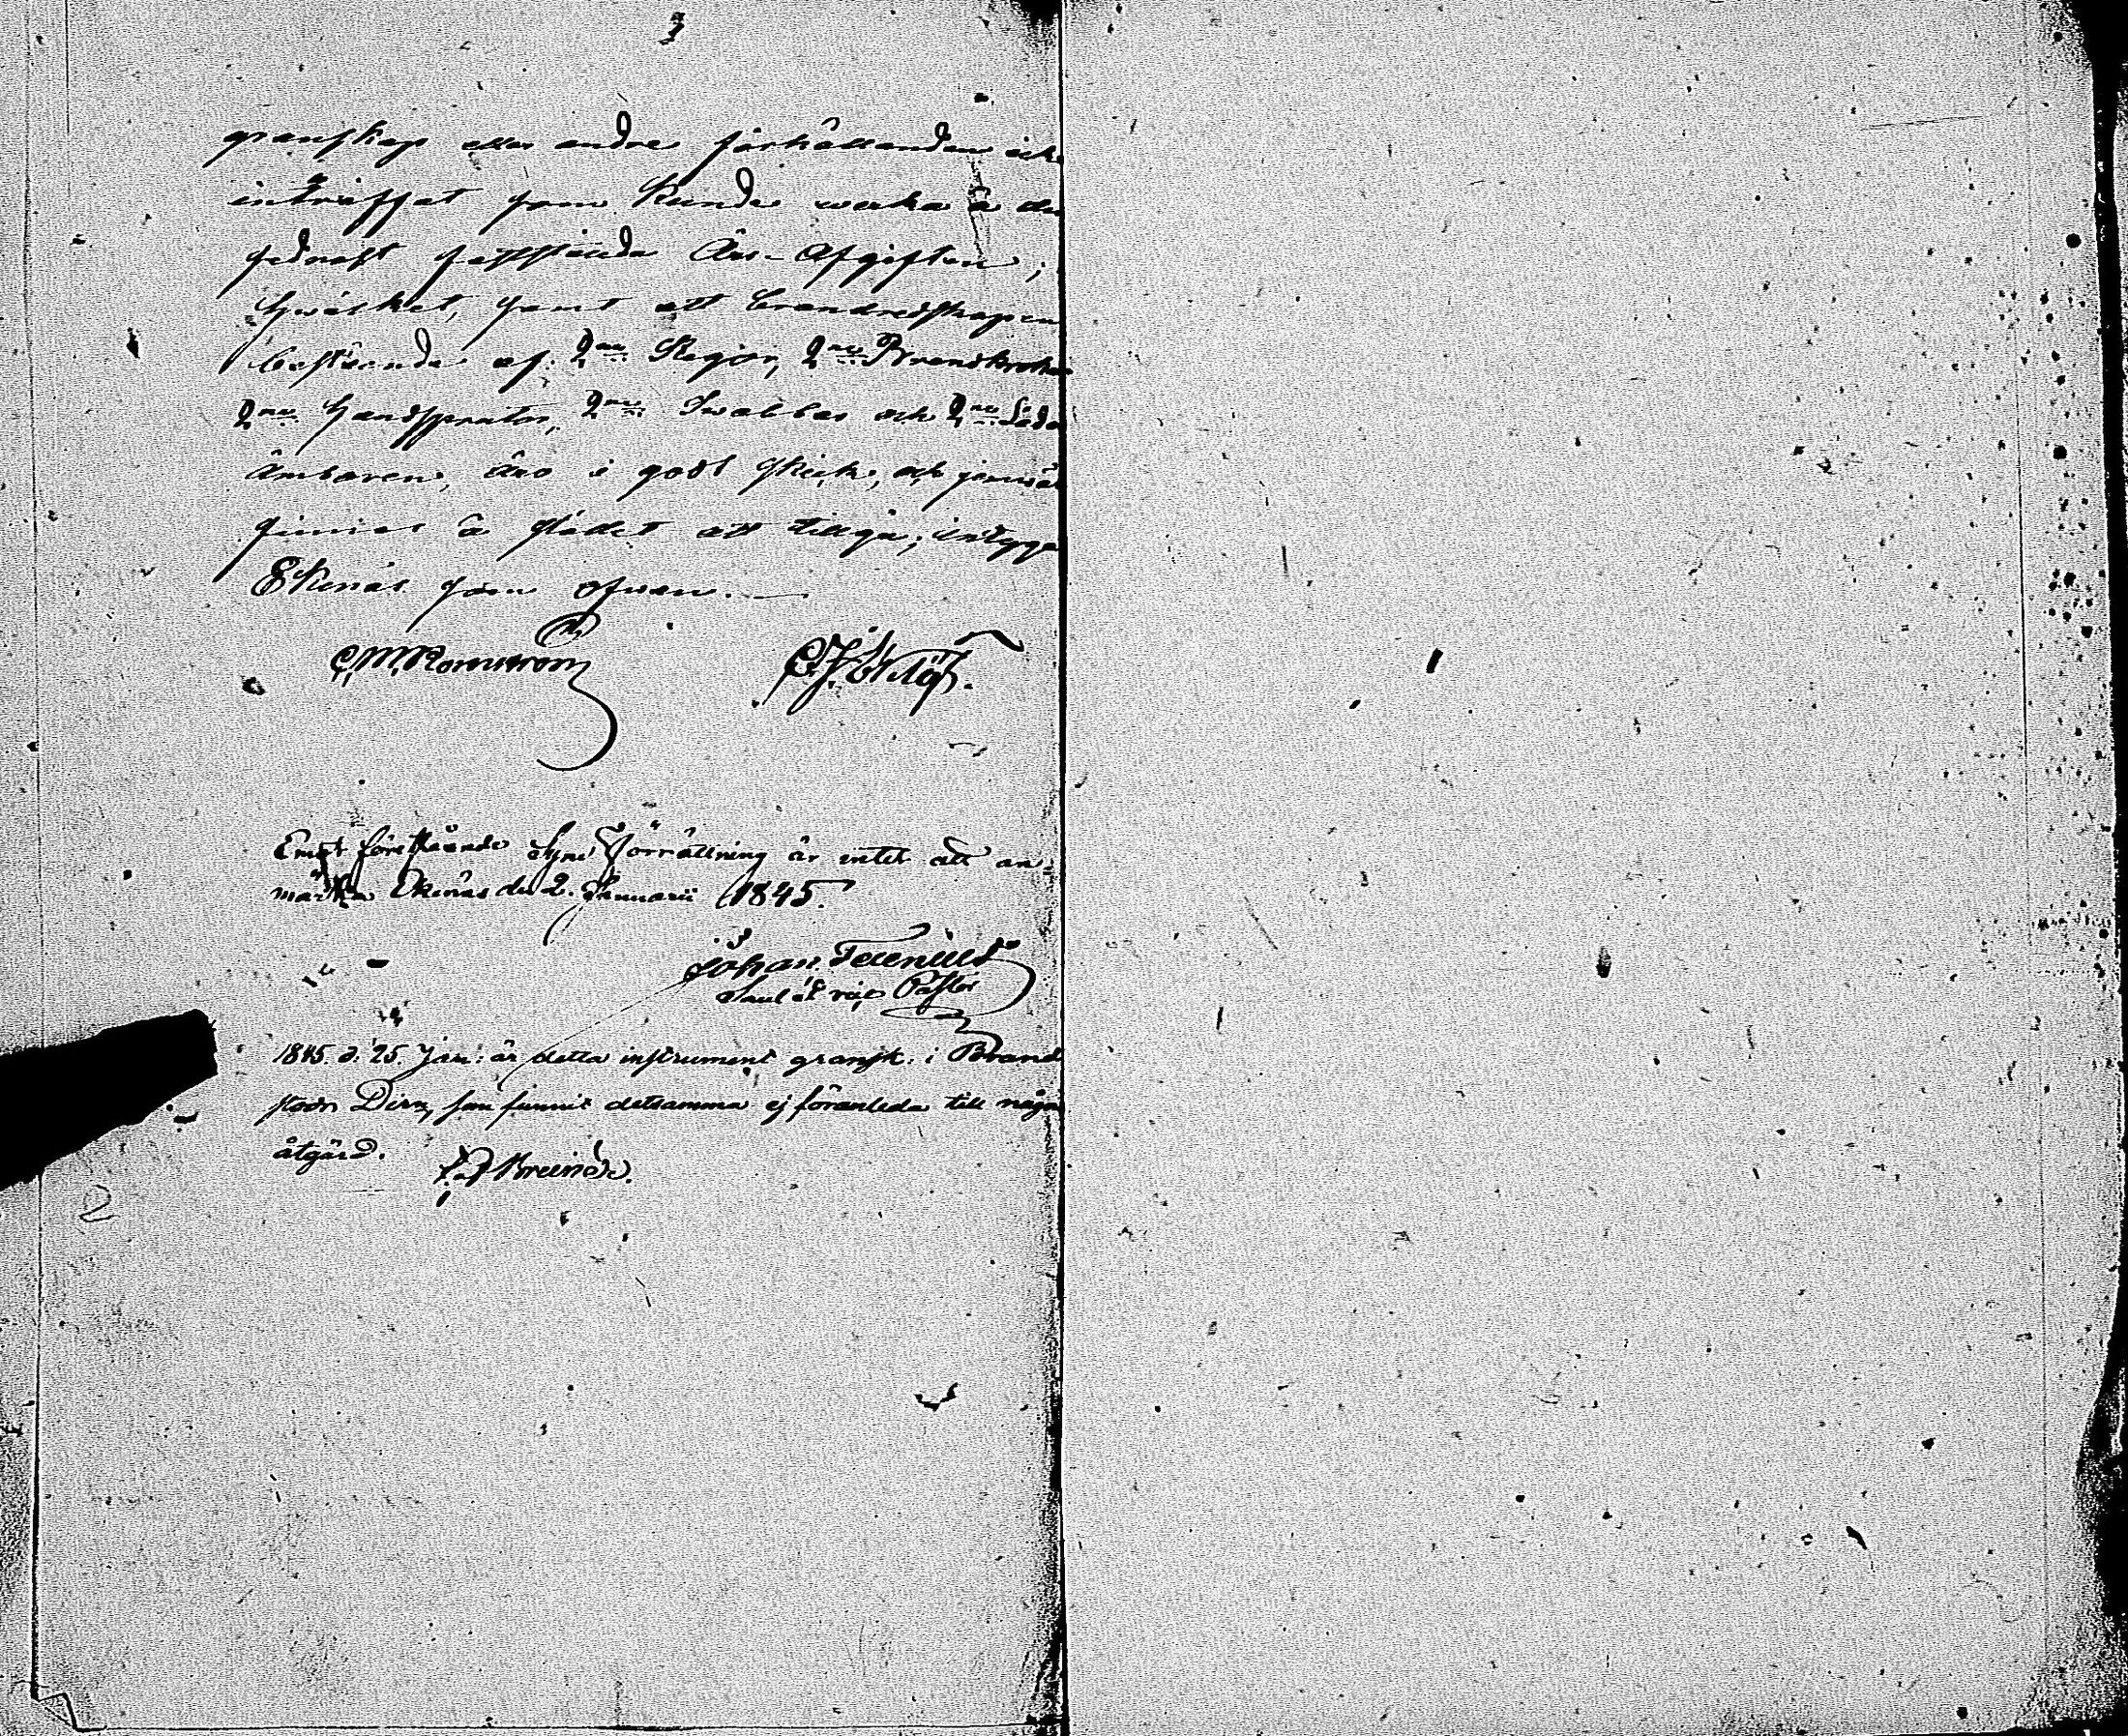 granskap eller andre förhållanden ick
inträffat som kunde werka å den
sednast faststälde Års-Afgiften;
hwilket, samt att brandredskapen
bestående af 2ne Stegor, 2ne Brandkrokar
2ne Handsprutor, 2ne Swabbar och 2ne Läder
Ämbaren, äro i godt skick, och jemwäl
finnes å stället att tillgå; intyga
Ekenäs som ofwan.
Emot föreståënde Syne Förrättning är intet att an
märka Ekenäs den 2. Januarii 1845.
Johan
Pastor
1845. d. 25 Jan: är detta instrument gransk. i Brand
stods Dirn, som funnit detsamma ej föranleda till någon
åtgärd.